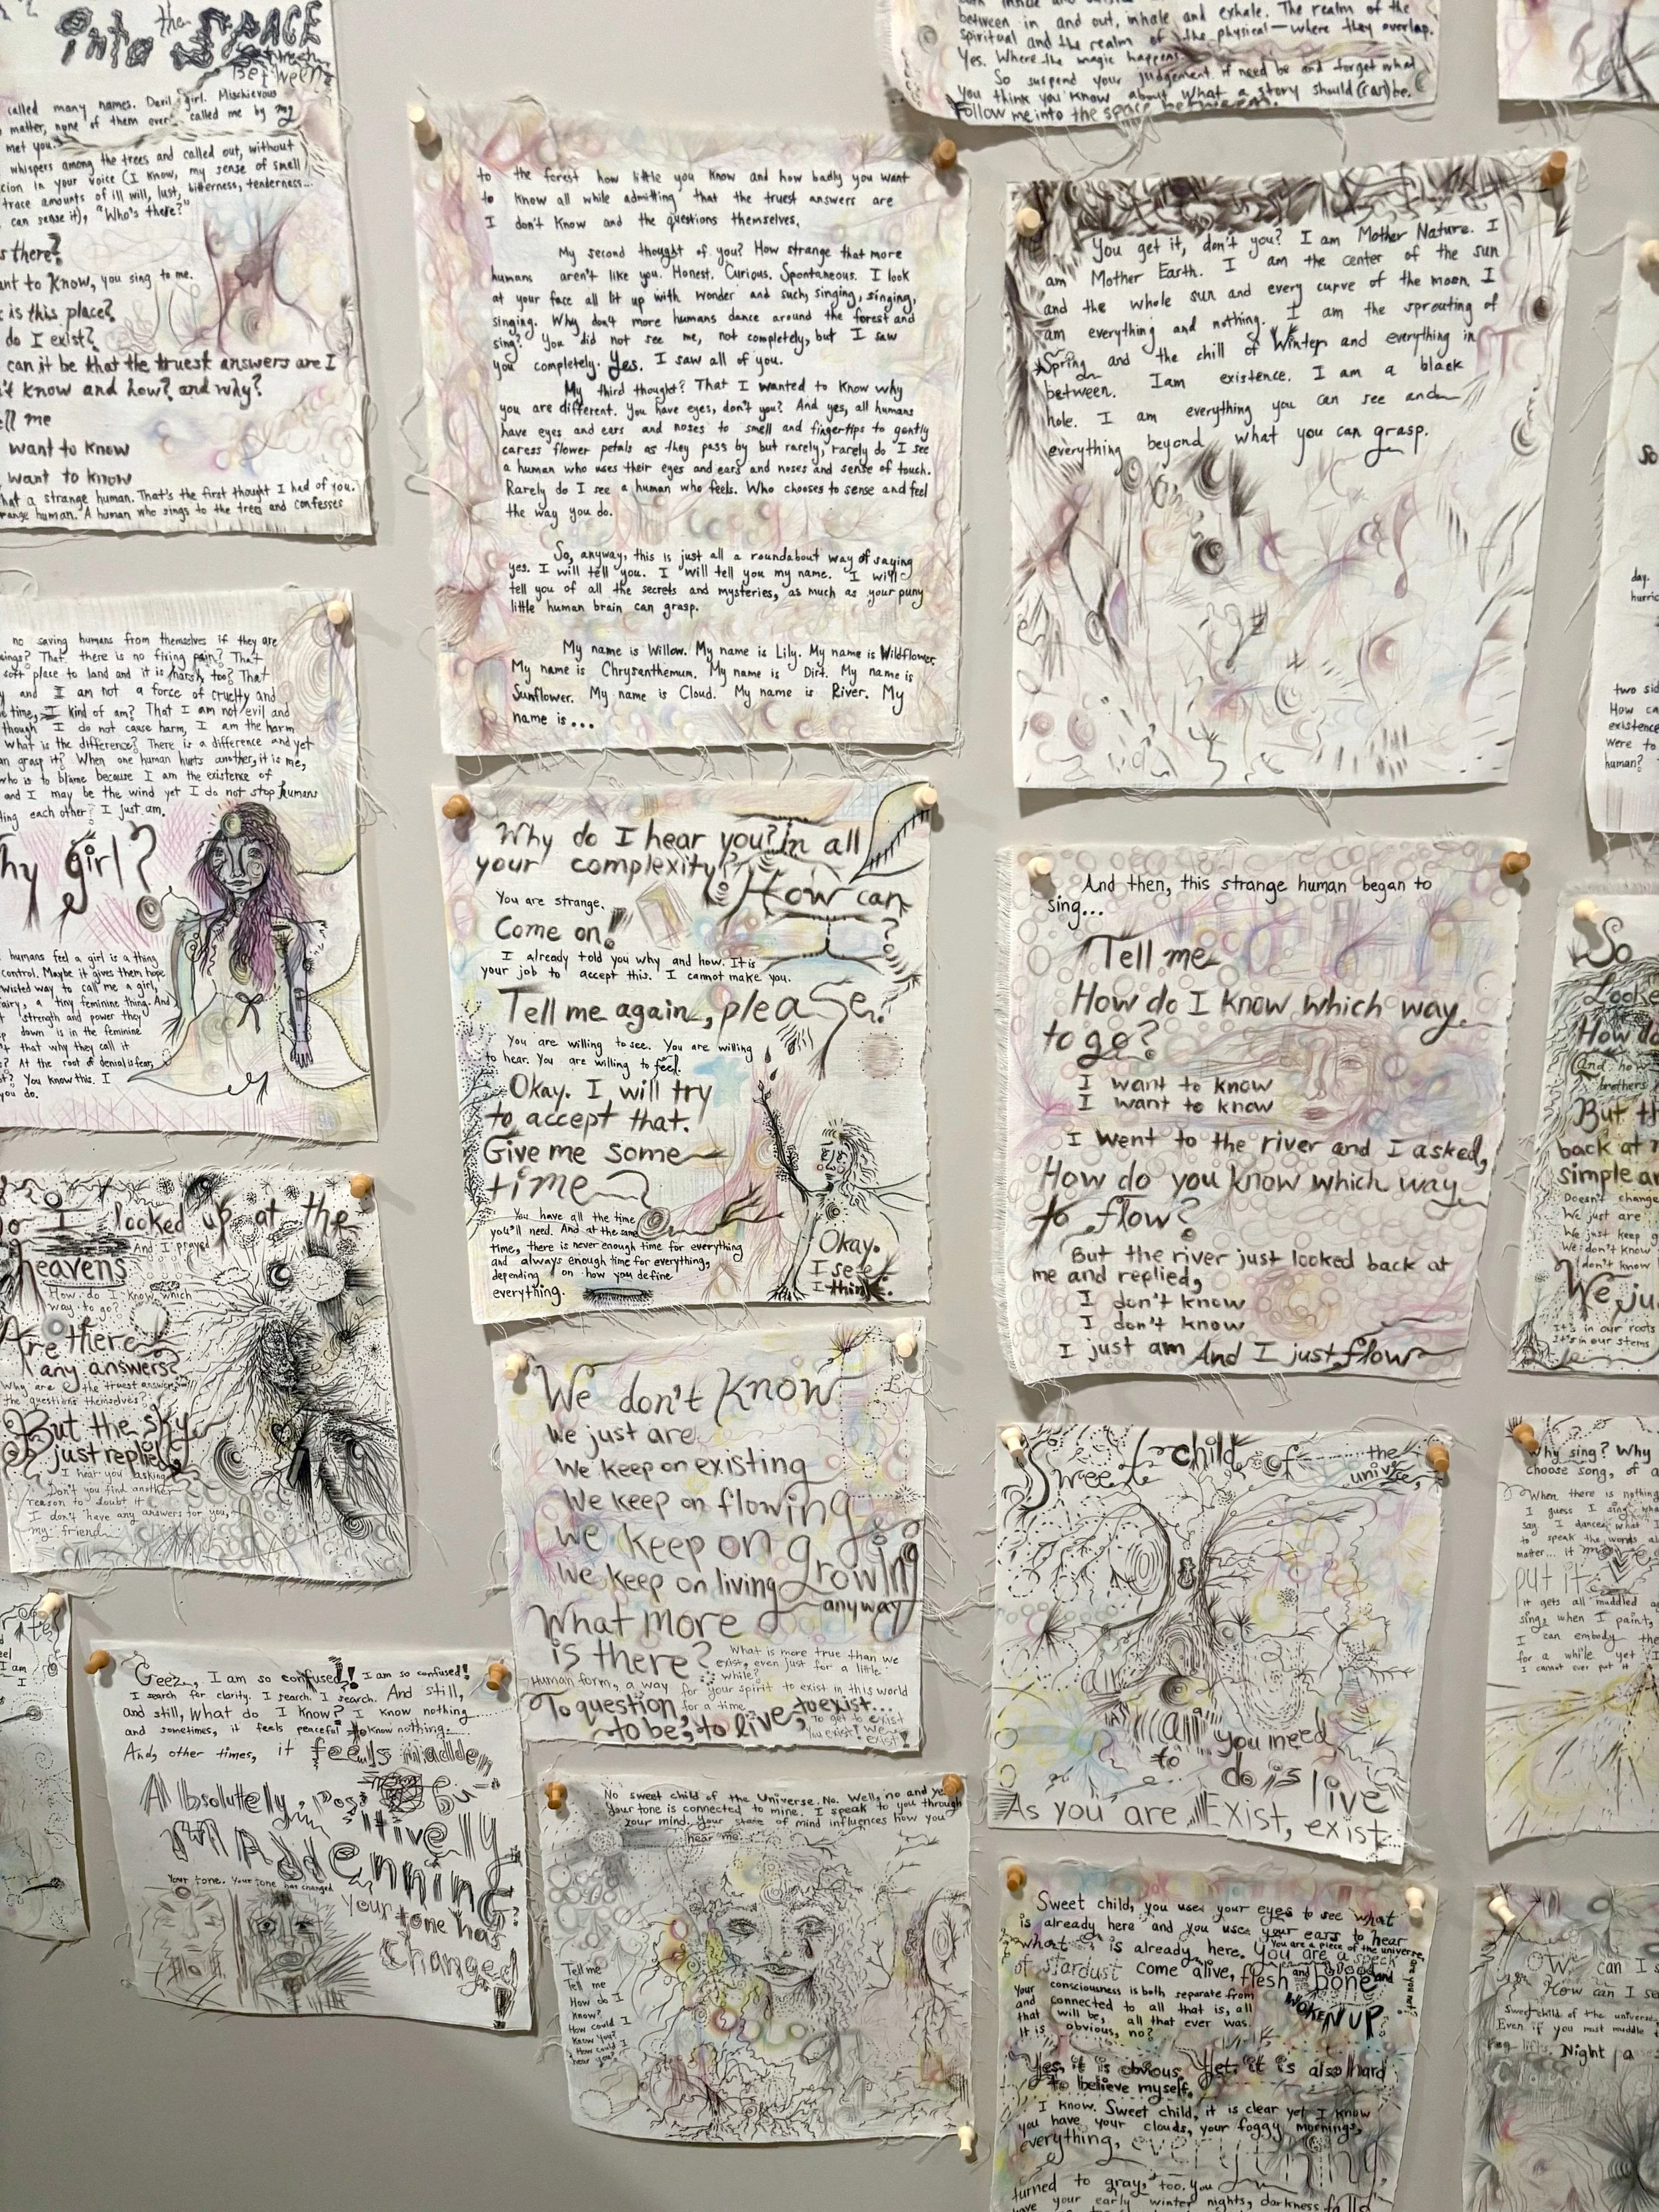 the
into SPACE
Between
called many names. Devil girl. Mischievous
matter, none of them ever called me by my
met you.
whispers among the trees and called out, without
in your voice (I know, my sense of smell
trace amounts of ill will, lust, bitterness, tenderness...
can sense it), "Who's there?"
there?
to know, you sing to me.
is this place?
do I exist?
can it be that the truest answers are I
know and how? and why?
me
want to know
want to know
a strange human. That's the first thought I had of you.
human. A human who sings to the trees and confesses
between in and out, inhale and exhale. The realm of the
spiritual and the realm of the physical—where they overlap.
Yes. Where the magic happens.
So suspend your judgement if need be and forget what
you think you know about what a story should (can) be.
Follow me into the space between.
to the forest how little you know and how badly you want
to know all while admitting that the truest answers are
I don't know and the questions themselves.
My second thought of you? How strange that more
humans aren't like you. Honest. Curious. Spontaneous. I look
at your face all lit up with wonder and such, singing, singing,
singing. Why don't more humans dance around the forest and
sing? You did not see me, not completely, but I saw
you completely. Yes. I saw all of you.
My third thought? That I wanted to know why
you are different. You have eyes, don't you? And yes, all humans
have eyes and ears and noses to smell and fingertips to gently
caress flower petals as they pass by but rarely, rarely do I see
a human who uses their eyes and ears and noses and sense of touch.
Rarely do I see a human who feels. Who chooses to sense and feel
the way you do.
So, anyway, this is just all a roundabout way of saying
yes. I will tell you. I will tell you my name. I will
tell you of all the secrets and mysteries, as much as your puny
little human brain can grasp.
My name is Willow. My name is Lily. My name is Wildflower.
My name is Chrysanthemum. My name is Dirt. My name is
Sunflower. My name is Cloud. My name is River. My
name is...
You get it, don't you? I am Mother Nature. I
am Mother Earth. I am the center of the sun
and the whole sun and every curve of the moon. I
am everything and nothing. I am the sprouting of
Spring and the chill of Winter and everything in
between. I am existence. I am a black
hole. I am everything you can see and
everything beyond what you can grasp.
no saving humans from themselves if they are
That there is no fixing pain? That
soft place to land and it is harsh, too? That
and I am not a force of cruelty and
time, I kind of am? That I am not evil and
though I do not cause harm, I am the harm
What is the difference? There is a difference and yet
grasp it? When one human hurts another, it is me,
who is to blame because I am the existence of
and I may be the wind yet I do not stop humans
each other? I just am.
girl?
humans feel a girl is a thing
control. Maybe it gives them hope
twisted way to call me a girl,
fairy, a tiny feminine thing. And
strength and power they
down is in the feminine
that why they call it
At the root of denial is fear,
You know this. I
you do.
Why do I hear you? In all
your complexity?
How can
?
You are strange.
Come on!
I already told you why and how. It is
your job to accept this. I cannot make you.
Tell me again, please?
You are willing to see. You are willing
to hear. You are willing to feel.
Okay. I will try
to accept that.
Give me some
time
You have all the time
you'll need. And at the same
time, there is never enough time for everything
and always enough time for everything,
depending on how you define
everything.
Okay.
I see
I think.
And then, this strange human began to
sing...
Tell me
How do I know which way
to go?
I want to know
I want to know
I went to the river and I asked,
How do you know which way
to flow?
But the river just looked back at
me and replied,
I don't know
I don't know
I just am And I just flow
I looked up at the
heavens
And I prayed
How do I know which
way to go?
Are there
any answers?
Why are the truest answers
the questions themselves
But the sky
just replied,
I hear you asking
Don't you find another
reason to doubt it
I don't have any answers for you,
my friend
We don't know
We just are
We keep on existing
We keep on flowing
We keep on growing
We keep on living
anyway
What more
is there?
What is more true than we
exist, even just for a little
while?
Human form, a way for your spirit to exist in this world
for a time
To question, to exist...
to be, to live,
To get to exist
You exist! We
exist!
Sweet child of the
universe,
all you need
to do is live
As you are Exist, exist
Geez, I am so confused! I am so confused!
I search for clarity. I search. I search. And still,
and still, What do I know? I know nothing
and sometimes, it feels peaceful to know nothing.
And, other times, it feels madden
Absolutely, pos
itively
MADDENNING
Your tone. Your tone has changed
Your tone has
changed
?
No sweet child of the Universe. No. Well, no and yes
Your tone is connected to mine. I speak to you through
your mind. Your state of mind influences how you
hear me.
Tell me
Tell me
How do I
know?
How could I
know you?
How could I
hear you?
Sweet child, you use your eyes to see what
is already here and you use your ears to hear
what is already here. You are a speck
You are a piece of the universe,
of stardust come alive, flesh and blood and bone and
WOKEN UP
Your consciousness is both separate from
and connected to all that is, all
that will be, all that ever was.
It is obvious, no?
Yes, it is obvious. Yet, it is also hard
to believe myself.
I know. Sweet child, it is clear yet I know
you have your clouds, your foggy mornings,
everything, everything
turned to gray, too. You
have your early winter nights, darkness falls
So
day.
two
How
existence
Were to
human?
So
Looke
How do
And how
brothers
But th
back at
simple an
Doesn't change
We just are
We just keep
We don't know
I don't know
We ju
It's in our roots
It's in our stems
Why sing? Why
choose song, of a
When there is nothing
I guess I sing
say I dance what I
to speak the words
matter... it
put it
it gets all muddled
sing, when I paint,
I can embody the
for a while yet I
I cannot ever put it
can I s
How can I se
Sweet child of the universe
Even if you must muddle
Night